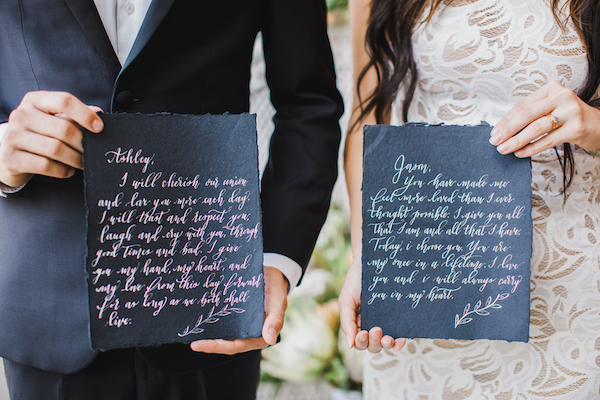 Ashley,
I will cherish our union
and lov you more each day.
I will trust and respect you,
laugh and cry with you, through
good times and bad. I give
you my hand, my heart, and
my love from this day forward
for as long as we both shall
live.
Jason,
You have made me
feel more loved than I ever
thought possible. I give you all
that I am and all that I have.
Today, i choose you. You are
my once in a lifetime. I love
you and i will always carry
you in my heart.